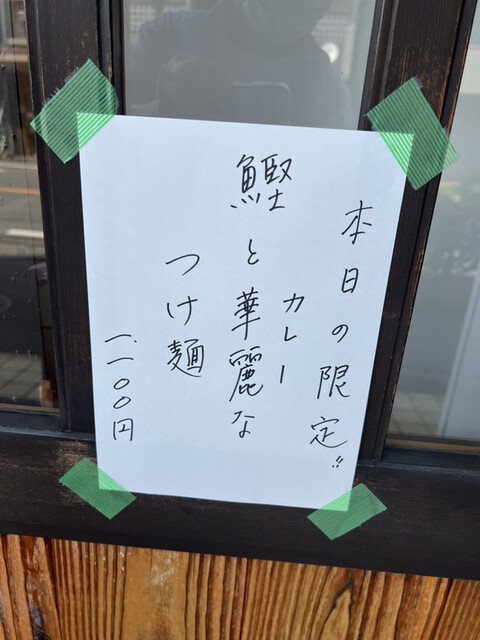 本日の限定!!
カレー
鰹と華麗な
つけ麺
一、一〇〇円